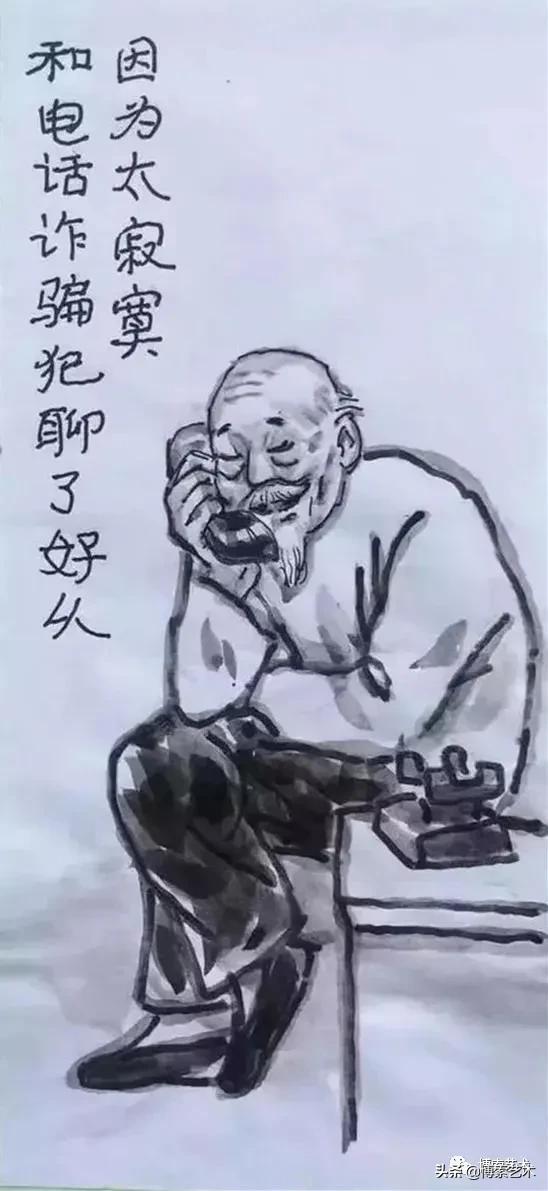 因为太寂寞
和电话诈骗犯聊了好久
博索艺术
头条@博索艺术